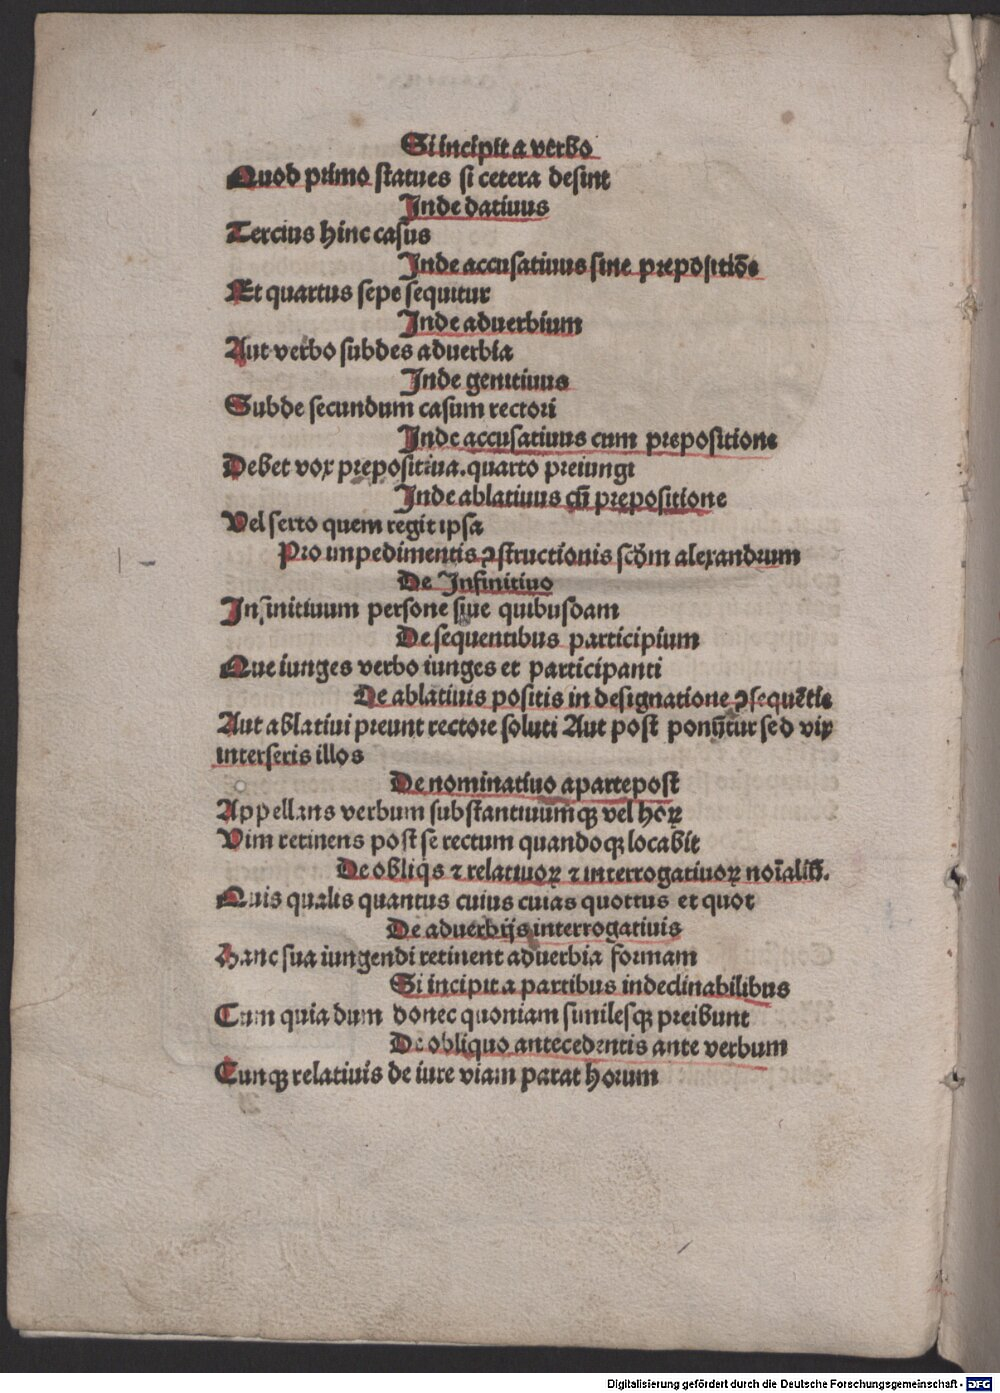 Si incipit a verbo
Quod primo statues si cetera desint
Inde datiuus
Tercius hinc casus
Inde accusatiuus sine prepositiōe
Et quartus sepe sequitur
Inde aduerbium
Aut verbo subdes aduerbia
Inde genitiuus
Subde secundum casum rectori
Inde accusatiuus cum prepositione
Debet vox prepositiua. quarto preiungi
Inde ablatiuus cū prepositione
Vel serto quem regit ipsa
Pro impedimentis ꝯstructionis scd̄m alexandrum
De Infinitiuo
Infinitiuum persone siue quibusdam
De sequentibus participium
Que iunges verbo iunges et participanti
De ablatiuis positis in designatione ꝯsequētie
Aut ablatiui preunt rectore soluti Aut post ponūtur sed vix
interseris illos
De nominatiuo a parte post
Appellans verbum substantiuumqꝫ vel hoꝝ
Vim retinens post se rectum quandoqꝫ locabit
De obliqs ⁊ relatiuoꝝ ⁊ interrogatiuoꝝ noīalib̄.
Quis qualis quantus cuius cuias quottus et quot
De aduerbijs interrogatiuis
Hanc sua iungendi retinent aduerbia formam
Si incipit a partibus indeclinabilibus
Cum quia dum donec quoniam similesqꝫ preibunt
De obliquo antecedentis ante verbum
Cunqꝫ relatiuis de iure viam parat horum
Digitalisierung gefördert durch die Deutsche Forschungsgemeinschaft - DFG